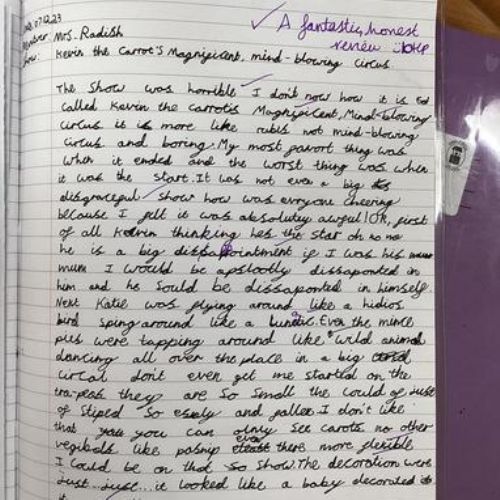 07.12.23
Mrs. Radish
✓ A fantastic, honest
review
Kevin the Carrot's Magnificent, mind-blowing circus
The show was horrible I don't now how it is
called Kevin the carrotis Magnificent, Mind-blowing
circus it is more like rubis not mind-blowing
circus and boring. My most favort thing was
when it ended and the worst thing was when
it was the start. It was not even a big
disgraceful show how was evryone cheering
because I felt it was absolutey awful! OK, first
of all Kevin thinking hes the star oh no no
he is a big dissapointment if I was his
mum I would be apslootly dissaponted in
him and he sould be dissaponted in himself
Next Katie was flying around like a hidios
bird sping around like a lunatic. Even the mince
pies were tapping around like wild animal
dancing all over the place in a big
circal don't even get me started on the
they are so small the could of just
of sliped so esaly and fallen. I don't like
that you can olnly see carots no other
vegibals like pasnip even there more flexible
I could be on that so show. The decoration were
just...just...it looked like a baby decorated it